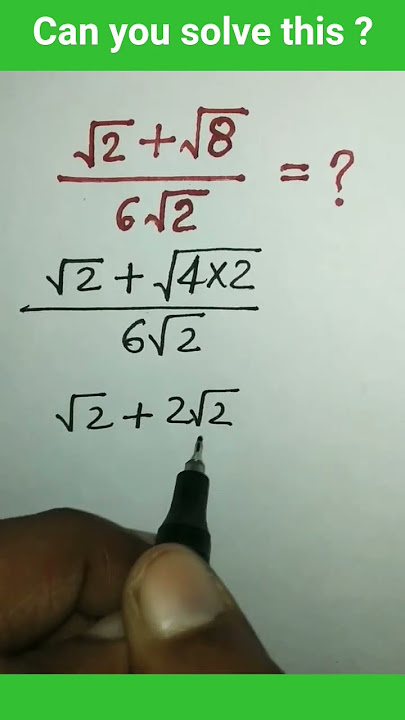 Can you solve this ?
√2 + √8
6√2
= ?
√2 + √4×2
6√2
√2 + 2√2